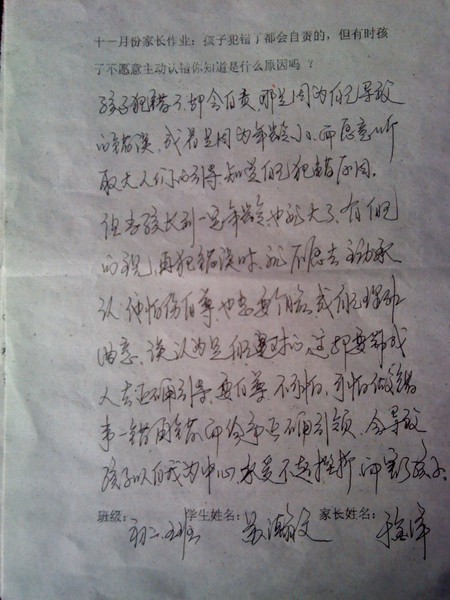 十一月份家长作业：孩子犯错了都会自责的，但有时孩
子不愿意主动认错你知道是什么原因吗？
孩子犯错了，却会自责，那是因为自己导致
的错误，或者是因为年龄小，而愿意听
取大人们的引导，知道自己犯错原因。
但当孩长到一定年龄，也就大了，有自己
的 ，再犯错误时，就不愿去主动承
认，他怕伤自尊，也想要个脸，或自己
曲意，误认为是自己对的，这却要靠成
人去正确引导，要自尊，不可怕，可怕做错
事一错再错，而你争正确引领，会导致
孩子以自我为中心，承受不起挫折，而害了孩子。
班级：初二. 班 学生姓名：吴瀚文 家长姓名：